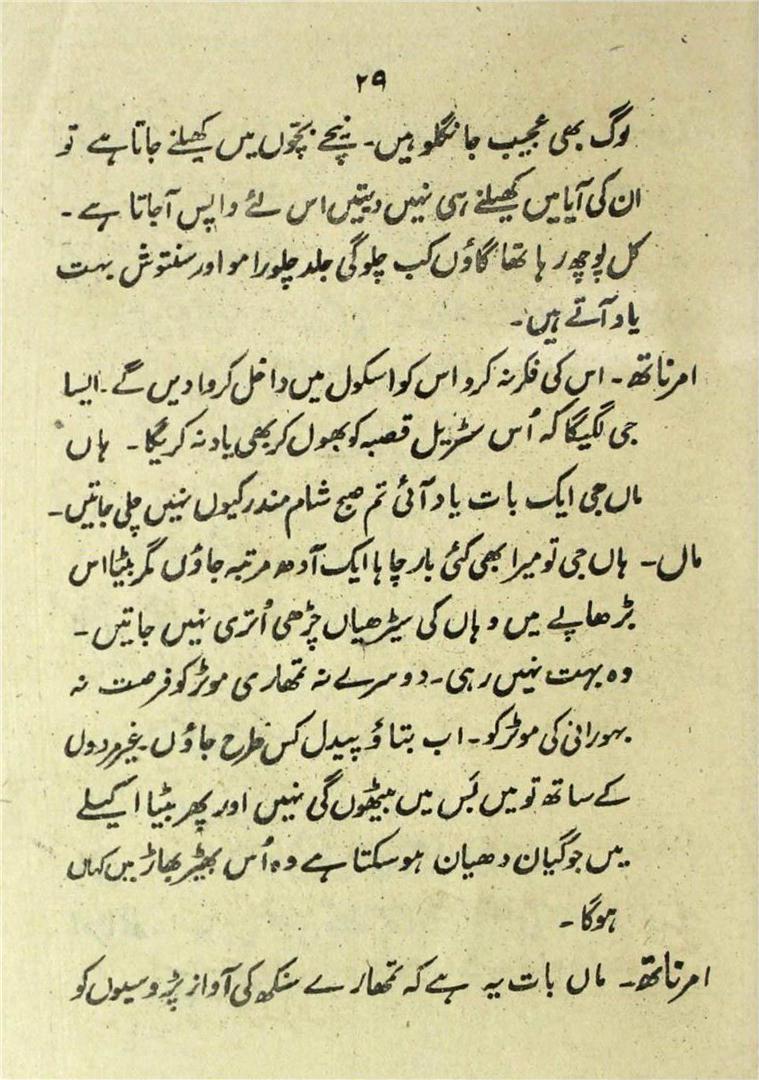 ۲۹
لوگ بھی عجیب جانگلو ہیں۔ نیچے بچّوں میں کھیلنے جاتا ہے تو
ان کی آیائیں کھیلنے ہی نہیں دیتیں اس لئے واپس آجاتا ہے۔
کل پوچھ رہا تھا گاؤں کب چلوگی جلد چلو رامو اور سنتوش بہت
یاد آتے ہیں۔
امرناتھ۔ اس کی فکر نہ کرو اس کو اسکول میں داخل کروا دیں گے۔ ایسا
جی لگیگا کہ اُس سٹریل قصبہ کو بھول کر بھی یاد نہ کریگا۔ ہاں
ماں جی ایک بات یاد آئی تم صبح شام مندر کیوں نہیں چلی جاتیں۔
ماں۔ ہاں جی تو میرا بھی کئی بار چاہا ایک آدھ مرتبہ جاؤں مگر بیٹا اس
بڑھاپے میں وہاں کی سیڑھیاں چڑھی اُتری نہیں جاتیں۔
وہ بہت نہیں رہی۔ دوسرے نہ تمھاری موٹر کو فرصت نہ
بہورانی کی موٹر کو۔ اب بتاؤ پیدل کس طرح جاؤں۔ غیر مردوں
کے ساتھ تو میں بَس میں بیٹھوں گی نہیں اور پھر بیٹا اکیلے
میں جو گیان دھیان ہوسکتا ہے وہ اُس بھیڑ بھاڑ میں کہاں
ہوگا۔
امرناتھ۔ ماں بات یہ ہے کہ تمھارے سنکھ کی آواز پڑوسیوں کو